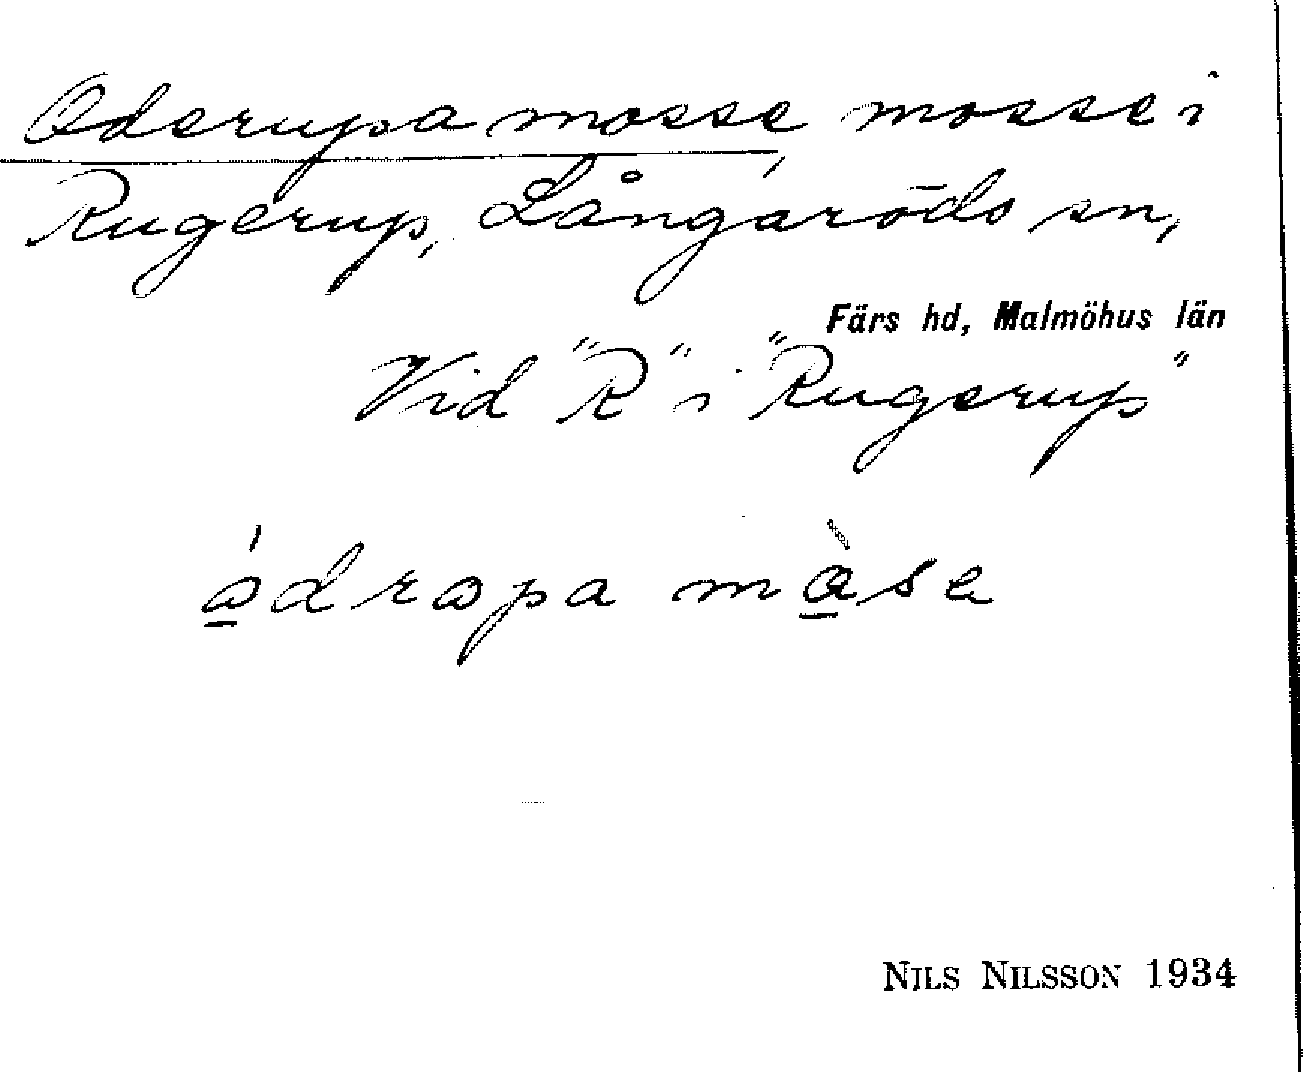 Oderupa mosse, mosse i
Rugerup, Långaröds sn,
Färs hd, Malmöhus län
Vid "R" i "Rugerup"
ódrapa màse
NILS NILSSON 1934